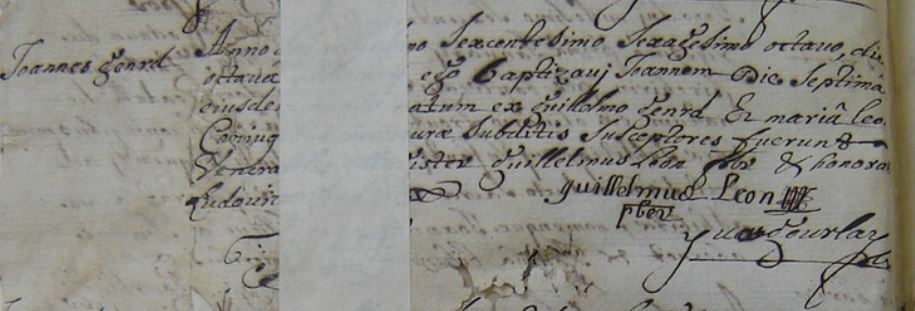 Joannes genrd
Anno mo sexcentesimo sexagesimo octavo, die
octava ego baptizavj Joannem die septimâ
eiusde atum ex guillelmo genrd Et mariâ leo
Coniug uræ subditis susceptores fuerunt
Venera ister guillelmus Leon pbr & honora
Ludovic
guillelmus Leon
pber